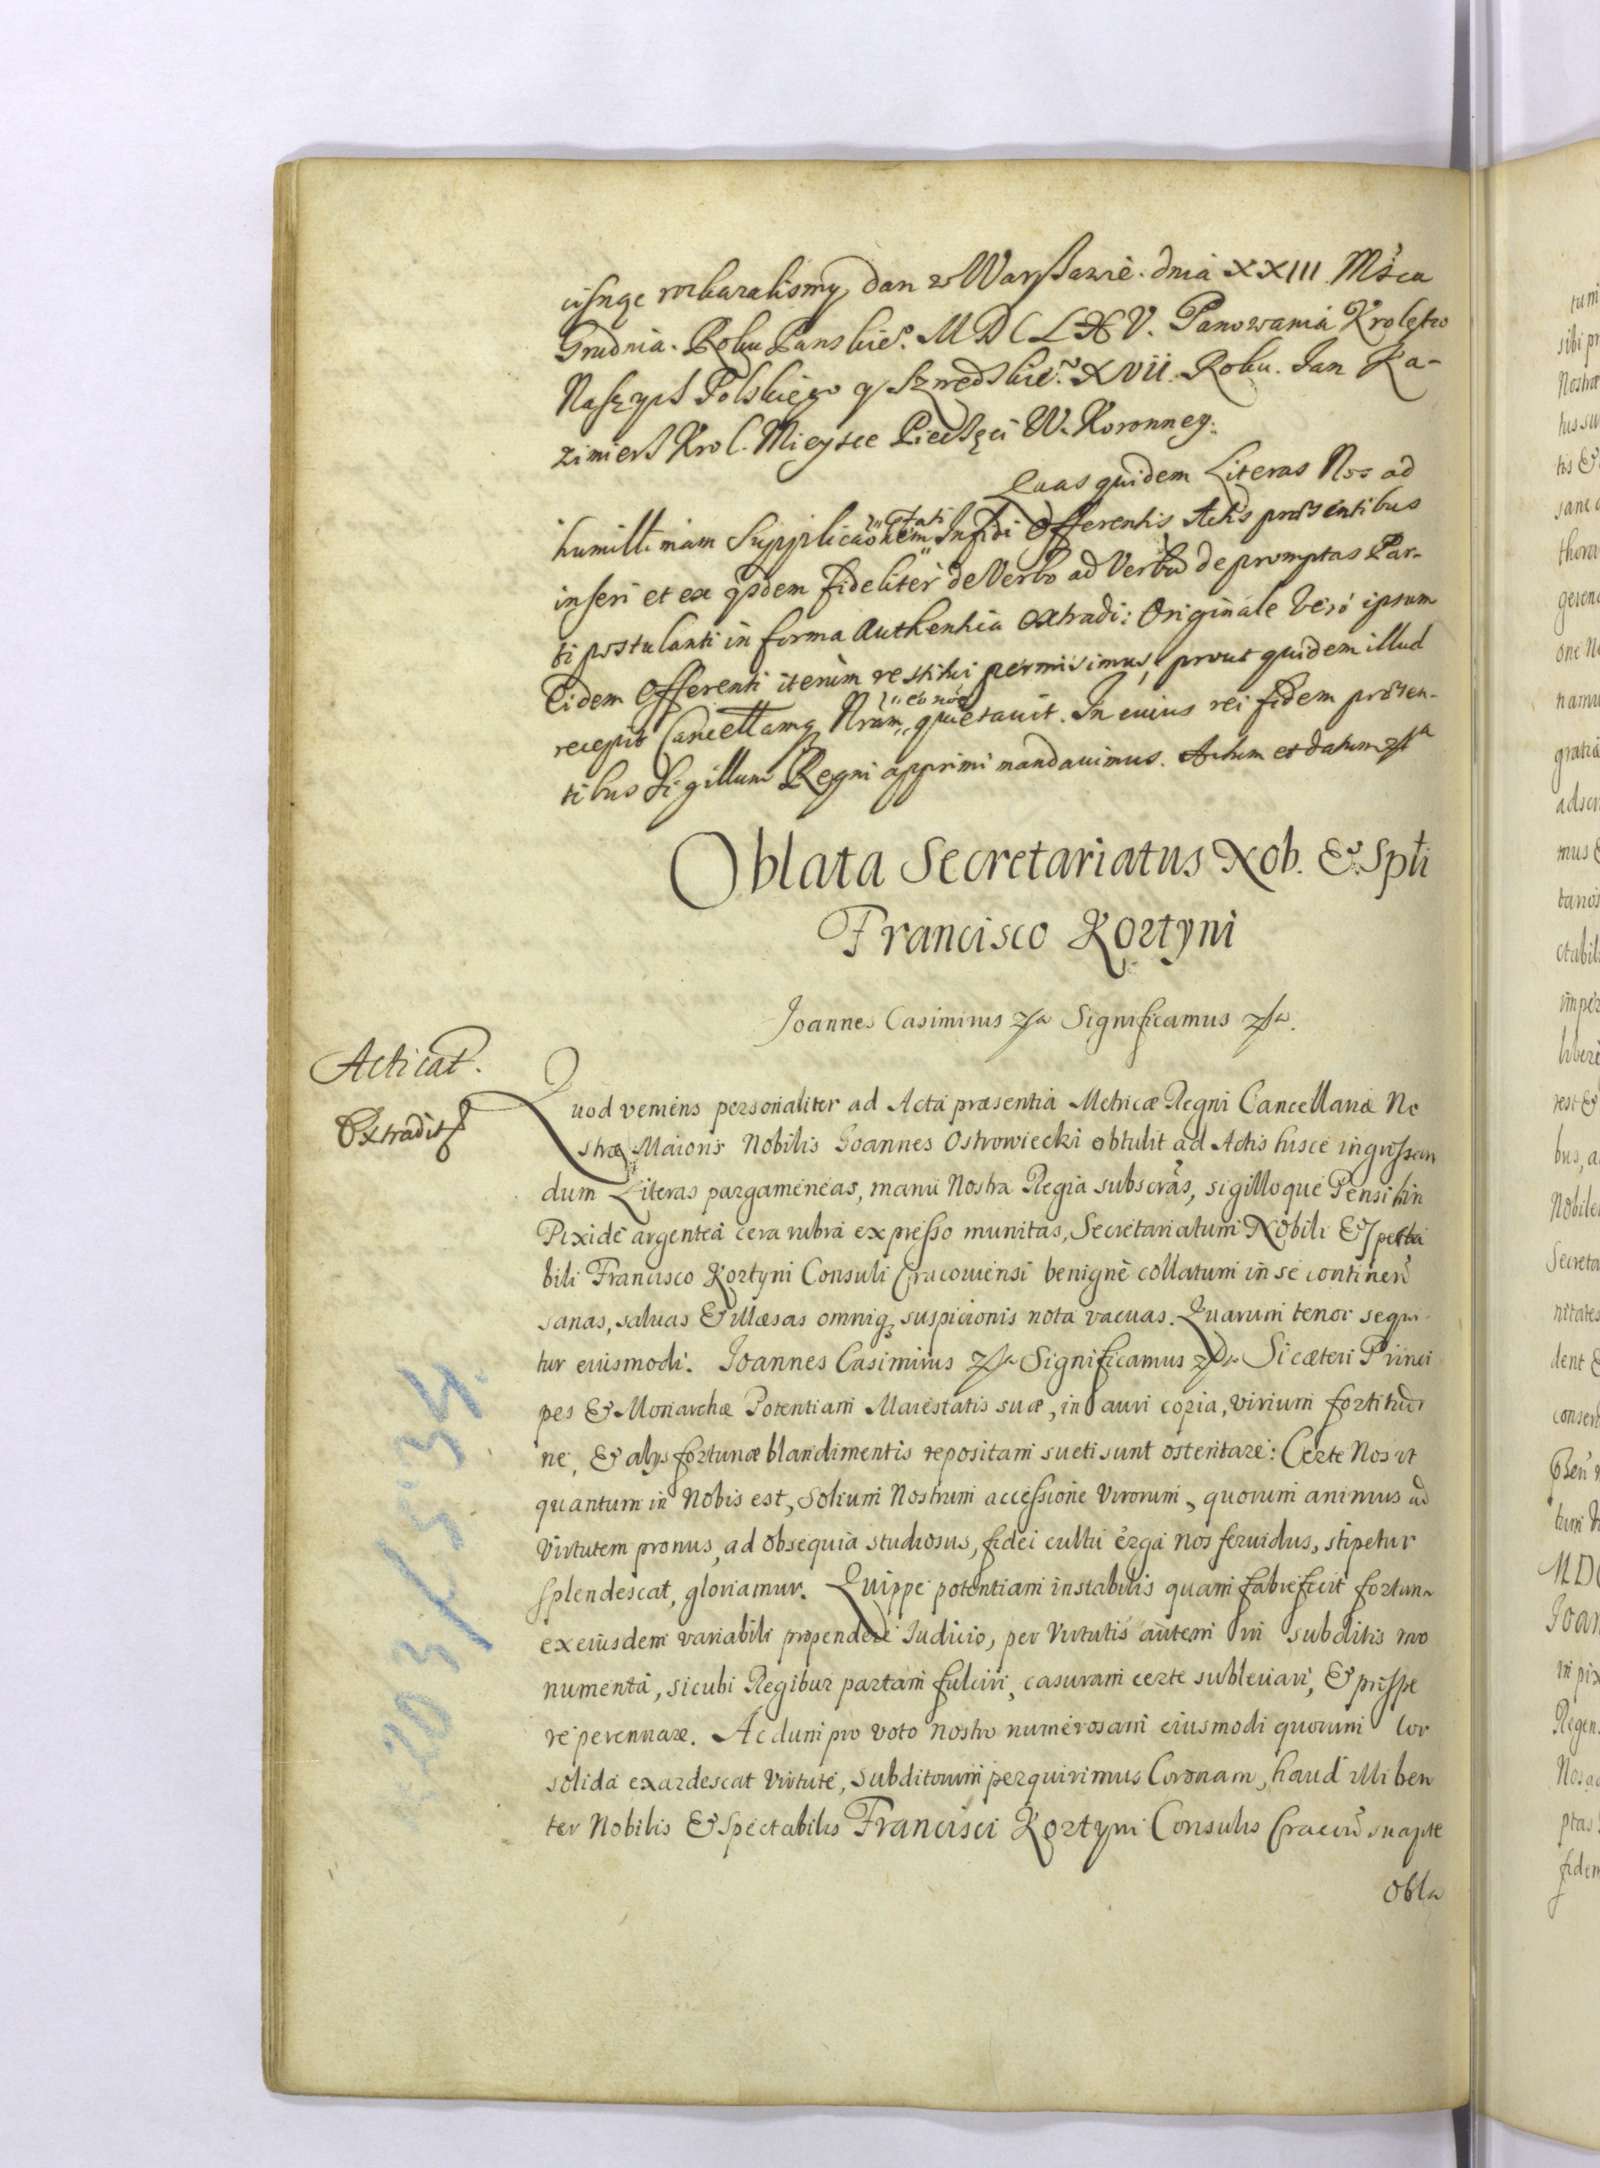 cisnąc rozkazalismy, dan w Warszawie. dnia XXIII. Msca
Grudnia. Roku Panskie⁰. M D C L X V. Panowania Krolestw
Naszych Polskiego y Szwedskie⁰. XVII. Roku. Jan Ka-
zimierz Krol. Mieysce Pieczęci W. Koronney.
Quas quidem Literas Nos ad
humillimam Supplicaõnem Infrãpti Offerentis Actis præsentibus
inseri et ex ijsdem fideliter de Verbo ad Verbũ depromptas Par-
ti postulanti in forma Authentica extradi: Originale Verò ipsum
Eidem Offerenti iterùm restitui permisimus, prout quidem illud
recepit Cancellamq Nram quietauit. In cuius rei fidem præsen-
tibus Sigillum Regni apprimi mandauimus. Actum et datum
Oblata Secretariatus Nob. & Spli
Francisco Kortyni
Joannes Casimirus Significamus
Acticat.
Extradit
Quod veniens personaliter ad Acta præsentia Metricæ Regni Cancellariæ No
stræ Maioris Nobilis Joannes Ostrowiecki obtulit ad Actis hisce ingrossan
dum Literas pargameneas, manu Nostra Regia subscrãs, sigilloque Pensili in
Pixide argentea cera rubra expresso munitas, Secretariatum Nobili & Specta
bili Francisco Kortyni Consuli Cracouiensi benignè collatum in se continen
sanas, saluas & illæsas omniq suspicionis nota vacuas. Quarum tenor sequi
tur eiusmodi. Joannes Casimirus Significamus Si cæteri Princi
pes & Monarchæ Potentiam Maiestatis suæ, in auri copia, virium fortitudi
ne, & alys fortunæ blandimentis repositam sueti sunt ostentare: Certe Nos ut
quantum in Nobis est, Solium Nostrum accessione Virorum, quorum animus ad
Virtutem pronus, ad obsequia studiosus, fidei cultu erga nos feruidus, stipetur
splendescat, gloriamur. Quippe potentiam instabilis quam fabrefecit fortuna
ex eiusdem variabili propendere Iudicio, per Virtutis autem in subditis mo
numenta, sicubi Regibus partam fulciri, casuram certe subleuari, & prospe
re perennare. Ac dum pro voto nostro numerosam eiusmodi quorum Cor
solida exardescat Virtute, subditorum perquirimus Coronam, haud illiben
ter Nobilis & Spectabilis Francisci Kortyni Consulis Cracou suapte
obla